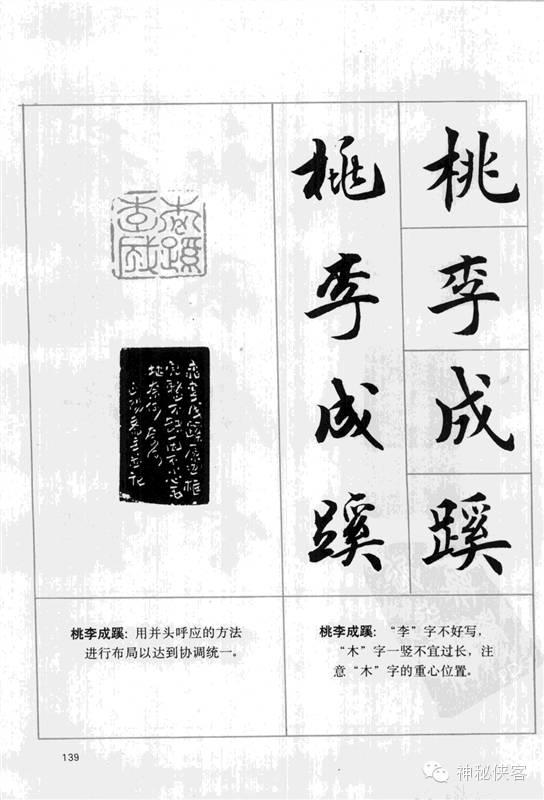 桃李成蹊
桃李成蹊
桃李成蹊：用并头呼应的方法
进行布局以达到协调统一。
桃李成蹊：“李”字不好写，
“木”字一竖不宜过长，注
意“木”字的重心位置。
139
神秘侠客